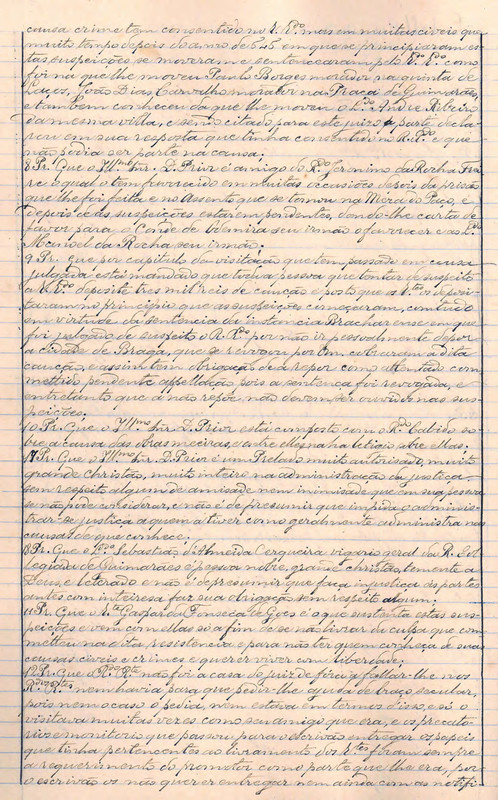 causa crime tem consentido no R. Rdo. mas em muitas civeis que
muito tempo depois do anno de 645 em que se principiaram es-
tas suspeições se moveram e sentencearam pelo Rdo. Rdo. como
foi na que lhe moveu Paulo Borges morador na quinta de
Laços, João Dias Carvalho morador na Praça de Guimarães,
e tambem conheceu da que lhe moveu o Ldo. André Ribeiro
da mesma villa, e sendo citado para este juizo a parte decla-
rou em sua resposta que tinha consentido no R. Rdo. e que
não podia ser parte na causa.
8 Pr. Que o Illmo. Snr. D. Prior é amigo do Rdo. Jeronimo da Rocha Frei-
re o qual o tem favorecido em muitas occasiões depois da prisão
que lhe foi feita e no Assento que se tomou na Meza do Paço, e
depois de as suspeições estarem pendentes, dando-lhe carta de
favor para o Conde de Odemira seu irmão o favorecer e ao Ldo.
Manoel da Rocha seu irmão.
9 Pr. que por capitulo da visitação que tem passado em causa
julgada está mandado que toda a pessoa que tentar de suspeito
a R. Rdo. deposite tres mil reis de caução e posto que os Rtes. os deposi-
taram no principio que as suspeições começaram, comtudo
em virtude da sentencia da instancia Bracharense em que
foi julgado de suspeito o R. Rdo. por não ir pessoalmente depor
a cidade de Braga, que se revogou por Em. cobraram a dita
caução, e assim tem obrigação de a repor como attentado com-
mettido pendente appellação pois a sentença foi revogada, e
entretanto que a não repõe não devem ser ouvidos nas sus-
peições.
10 Pr. Que o Illmo. Snr. D. Prior está composto com o Rdo. Cabido so-
bre a causa das obras meeiras, e entre elles não ha letigio sobre ellas.
17 Pr. Que o Illmo. Snr. D. Prior é um Prelado muito autorisado, muito
grande christão, muito inteiro na administração da justiça
sem respeito algum de amisade nem inimisade que em sua pessoa
se não póde considerar, e não é de presumir que impida o adminis-
trar-se justiça a quem a tiver como geralmente administra nas
causas de que conhece.
18 Pr. Que o Ldo. Sebastião d'Almeida Cerqueira vigario geral da R. Col-
legiada de Guimarães é pessoa nobre, grande christão, temente a
Deus, e leterado e não é de presumir que faça injustiça ás partes
antes com inteiresa faz sua obrigação sem respeito algum.
11 Pr. Que o Rte. Gaspar da Fonseca de Goes é o que sustenta estas sus-
peições e vem com ellas só a fim de se não livrar da culpa que com-
metteu na dita resistencia e para não ter quem conheça de suas
causas civeis e crimes e querer viver com liberdade.
12 Pr. Que o R. Rdo. não foi a casa do juiz de fóra a fallar-lhe nos
Rtes. nem havia para que pedir-lhe ajuda de braço secular,
pois nem o caso o pedia, nem estava em termos d'isso, e só o
visitava muitas vezes como seu amigo que era, e os precato-
rios e monitorio que passou para o escrivão entregar os papeis
que tinha pertencentes ao livramento dos Rtes. foram sempre
a requerimento do promotor como parte que lhe era, por-
o escrivão os não querer entregar nem ainda com as notifi-